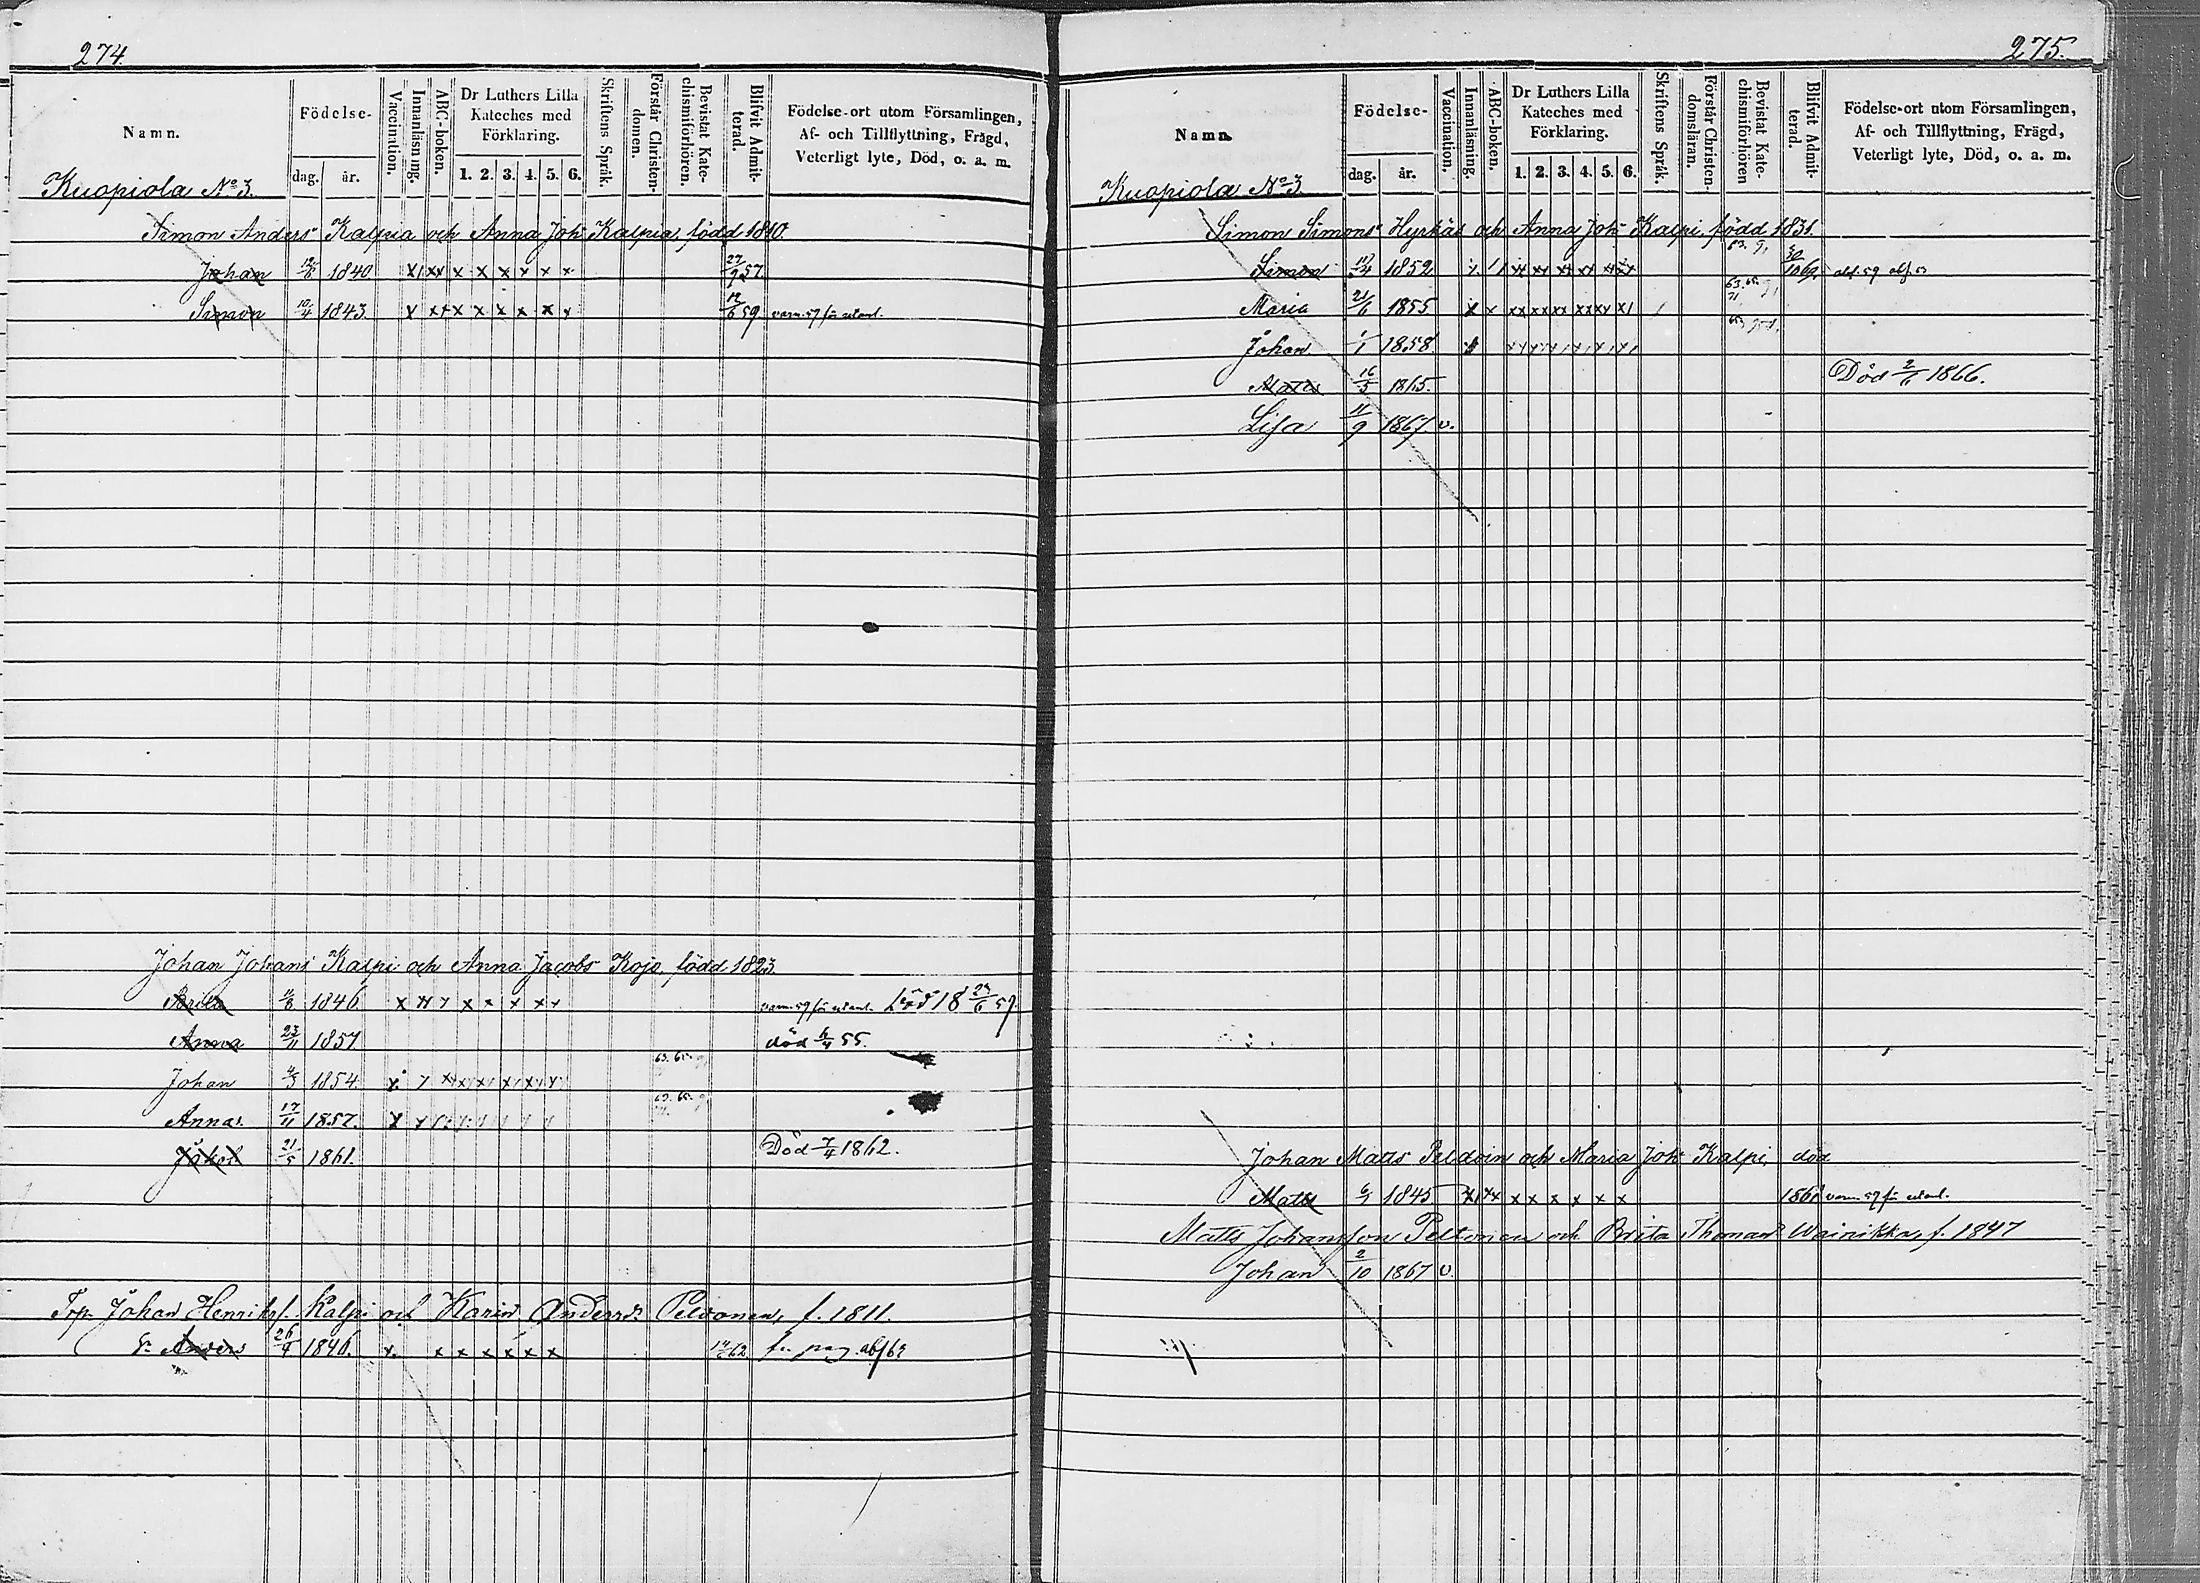 274.
Namn. Födelse- dag. år. Vaccination. Innanläsning. ABC-boken. Dr Luthers Lilla Kateches med Förklaring. 1. 2. 3. 4. 5. 6. Skriftens Språk. Förstår Christendomen. Bevistat Katechismiförhören. Blifvit Admitterad. Födelse-ort utom Församlingen, Af- och Tillflyttning, Frägd, Veterligt lyte, Död, o. a. m.
Kuopiola No 3.
Simon Anders Kalpia och Anna Joh Kalpia, född 1810.
Johan 1840 x x x x x x 27/9 57
Simon 10/4 1843 x x x x x x 59
Johan Johans Kalpi och Anna Jacobs Kojo, född 1823.
Brita 1846. x x x x x Död 18 59
Anna 23/11 1851. död 6/4 55.
Johan 1854. 63. 65.
Anna. 17/11 1857. 63. 65.
Jakob 21/5 1861. Död 7/4 1862.
Johan Henriks. Kalpi och Karin Anders. f. 1811.
Anders 26/4 1840. x. x x x x x x 62
275.
Namn. Födelse- dag. år. Vaccination. Innanläsning. ABC-boken. Dr Luthers Lilla Kateches med Förklaring. 1. 2. 3. 4. 5. 6. Skriftens Språk. Förstår Christendomsläran. Bevistat Katechismiförhören Blifvit Admitterad. Födelse-ort utom Församlingen, Af- och Tillflyttning, Frägd, Veterligt lyte, Död, o. a. m.
Kuopiola No 3
Simon Simons Hyrkäs och Anna Joh Kalpi, född 1831.
Simon 1852 30/10
Maria 21/6 1855 63. 65.
Johan 1/1 1858.
Matts 16/5 1865. Död 2/6 1866.
Lisa 11/9 1867 v.
Johan Matts och Maria Joh Kalpi, död
Matts 1845 x x x x x x
Matts Johansson Peltonen och Brita Thomasd Wainikka, f. 1847
Johan 2/10 1867 v.